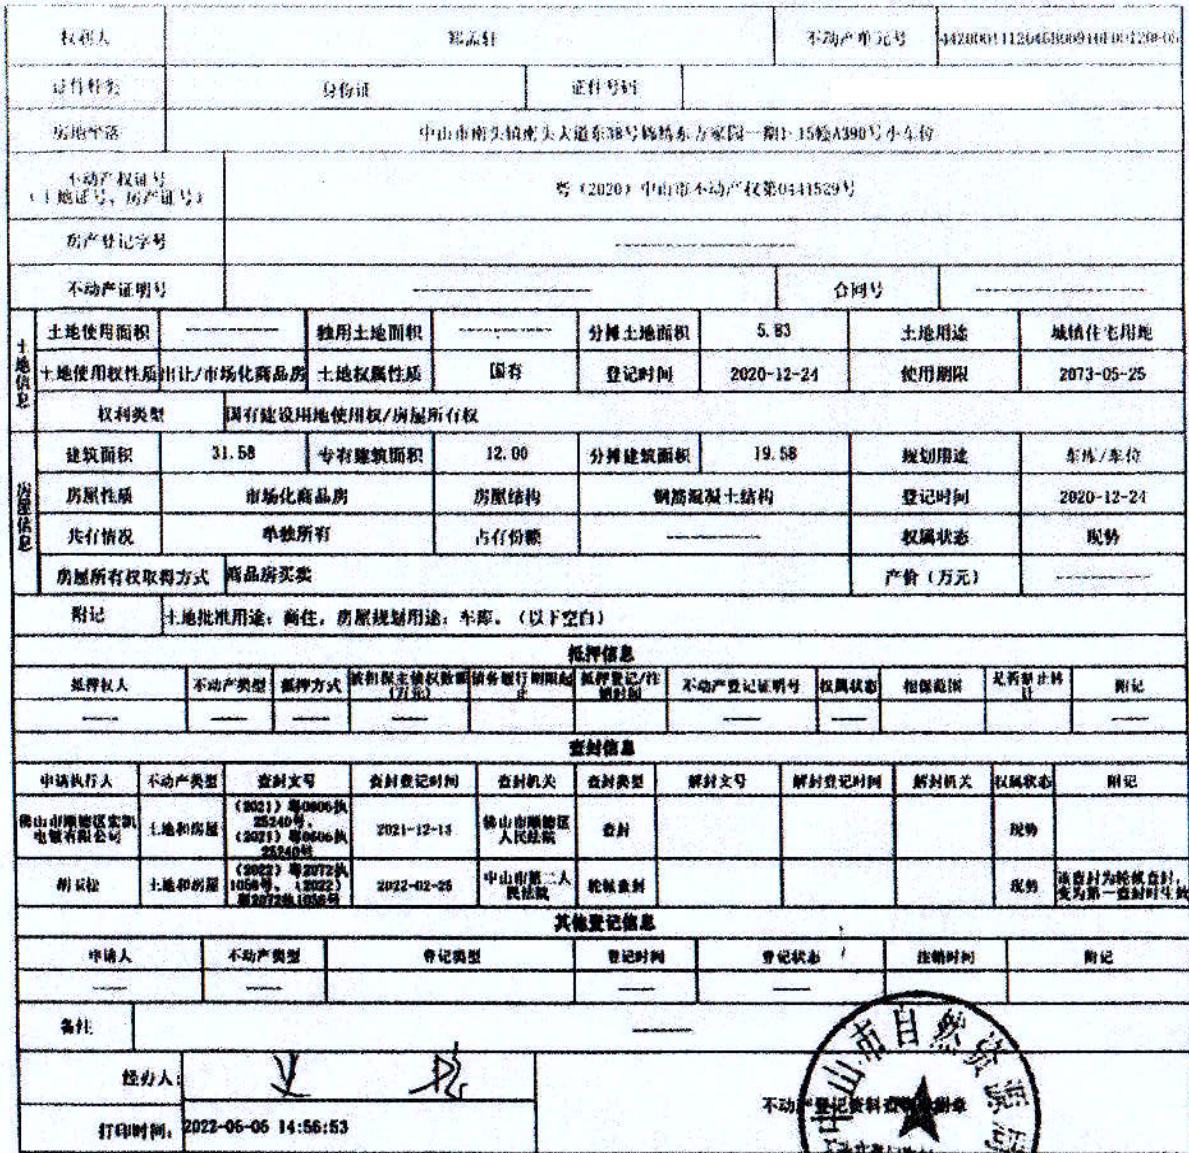 权利人 不动产单元号
证件种类 身份证 证件号码
房地坐落 中山市南头镇南头大道东38号锦绣东方家园一期1-15幢A390号小车位
不动产权证号
（土地证号、房产证号） 粤（2020）中山市不动产权第0441529号
房产登记字号 ————
不动产证明号 ———— 合同号 ————
土地信息
土地使用面积 ———— 独用土地面积 ———— 分摊土地面积 5.83 土地用途 城镇住宅用地
土地使用权性质 出让/市场化商品房 土地权属性质 国有 登记时间 2020-12-24 使用期限 2073-05-25
权利类型 国有建设用地使用权/房屋所有权
房屋信息
建筑面积 31.58 专有建筑面积 12.00 分摊建筑面积 19.58 规划用途 车库/车位
房屋性质 市场化商品房 房屋结构 钢筋混凝土结构 登记时间 2020-12-24
共有情况 单独所有 占有份额 ———— 权属状态 现势
房屋所有权取得方式 商品房买卖 产价（万元） ————
附记 土地批准用途：商住，房屋规划用途：车库。（以下空白）
抵押信息
抵押权人 不动产类型 抵押方式 被担保主债权数额（万元） 债务履行期限起止 抵押登记/注销时间 不动产登记证明号 权属状态 担保范围 是否禁止转让 附记
—— —— —— —— —— —— ——
查封信息
申请执行人 不动产类型 查封文号 查封登记时间 查封机关 查封类型 解封文号 解封登记时间 解封机关 权属状态 附记
佛山市顺德区宏凯电镀有限公司 土地和房屋 （2021）粤0606执25240号、（2021）粤0606执25240号 2021-12-13 佛山市顺德区人民法院 查封 现势
土地和房屋 （2022）粤2072执1056号、（2022）粤2072执1056号 2022-02-25 中山市第二人民法院 轮候查封 现势 该查封为轮候查封，变为第一查封时生效
其他登记信息
申请人 不动产类型 登记类型 登记时间 登记状态 注销时间 附记
—— —— —— ——
备注 ——
经办人：
打印时间： 2022-06-06 14:56:53
不动产登记资料查
中山市自然资源局